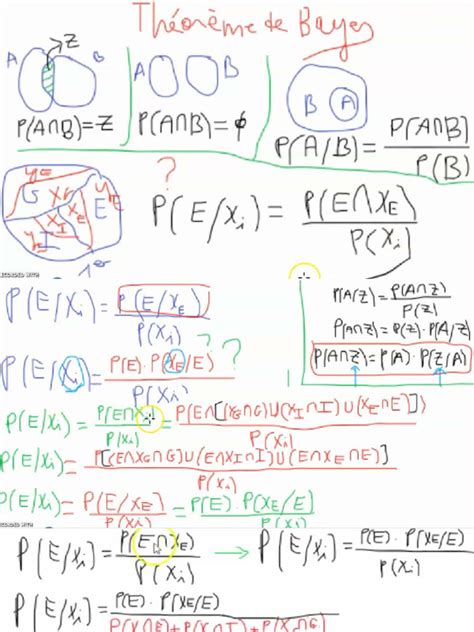 Théorème de Bayes
A Z B A B B A
P(A∩B)=Z P(A∩B)=ϕ P(A/B)= P(A∩B) / P(B)
?
P(E/Xi) = P(E∩XE) / P(Xi)
1er
P(E/Xi) = P(E/XE) / P(Xi)
P(A/Z) = P(A∩Z) / P(Z)
P(A∩Z) = P(Z) · P(A/Z)
P(A∩Z) = P(A) · P(Z/A)
? ?
P(E/Xi) = P(E) · P(XE/E) / P(Xi)
P(E/Xi) = P(E∩Xi) / P(Xi) = P(E∩[(XG∩G)∪(XI∩I)∪(XE∩E)]) / P(Xi)
P(E/Xi) = P[(E∩XG∩G)∪(E∩XI∩I)∪(E∩XE∩E)] / P(Xi)
P(E/Xi) = P(E/XE) / P(Xi) = P(E) · P(XE/E) / P(Xi)
P(E/Xi) = P(E∩XE) / P(Xi) → P(E/Xi) = P(E) · P(XE/E) / P(Xi)
P(E/Xi) = P(E) · P(XE/E)